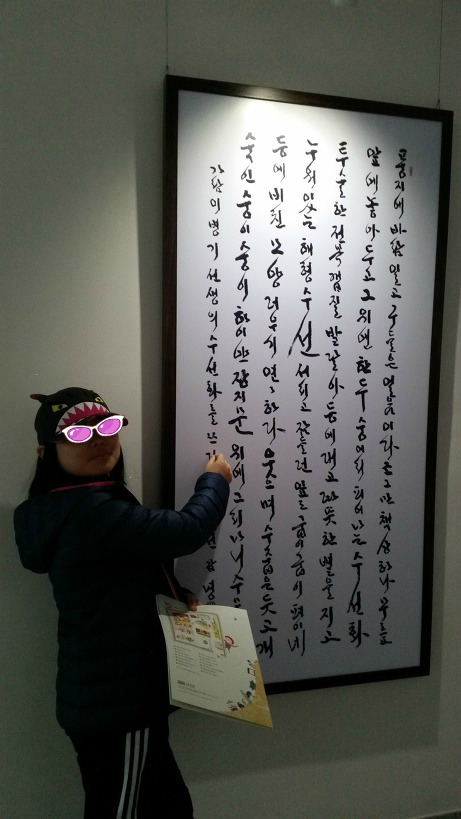 풍지에 바람 일고 구들은 얼음이다 조그만 책상 하나 무릎
앞에 놓아두고 그 위엔 한두 숭어리 피어나는 수선화
투술한 전복 껍질 발달아 등에 대고 따뜻한 볕을 지고
누워있는 해형수선 서리고 잠들던 잎도 굽이굽이 펴이네
등에 비친 모양 더우기 연연하다 웃으며 수줍은 듯 고개
숙인 숭이숭이 하이얀 장지문 위에 그리나니
가람 이병기 선생의 수선화를